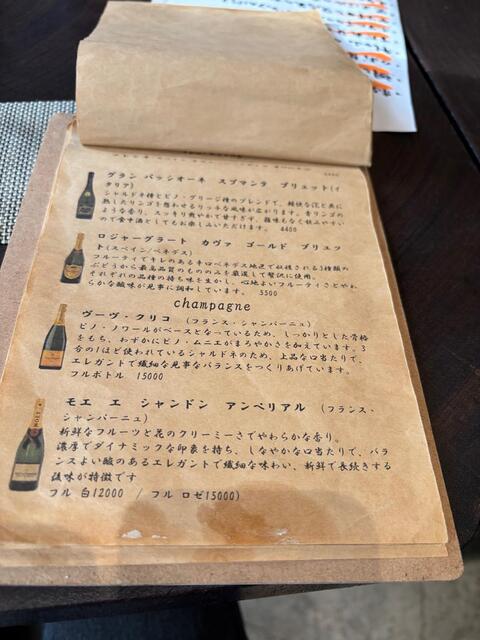 グラン パッシオーネ スプマンテ ブリュット(イ
タリア)
シャルドネ種とピノ・グリージ種のブレンドで、軽快な泡と共に
熟したリンゴを想わせるリッチな風味が広がります。青リンゴの
ような香り、スッキリ爽やかで甘すぎず、雑味もなく飲みやすい
ので食中酒としてもお楽しみいただけます。 4400
ロジャーグラート カヴァ ゴールド ブリュッ
ト(スペイン/ペネデス)
フルーティでキレのある辛口ペネデス地区で収穫される3種類の
ぶどうから最高品質のもののみを厳選して贅沢に使用。
それぞれの品種の持ち味を生かし、心地よいフルーティさとやわ
らかな酸味が見事に調和しています。 5500
champagne
ヴーヴ・クリコ (フランス・シャンパーニュ)
ピノ・ノワールがベースとなっているため、しっかりとした骨格
をもち、わずかにピノ・ムニエがまろやかさを加えています。3
分の1ほど使われているシャルドネのため、上品な口当たりで、
エレガントで繊細な見事なバランスをつくりあげています。
フルボトル 15000
モエ エ シャンドン アンペリアル (フランス・
シャンパーニュ)
新鮮なフルーツと花のクリーミーさでやわらかな香り。
濃厚でダイナミックな印象を持ち、しなやかな口当たりで、バラ
ンスよい酸のあるエレガントで繊細な味わい、新鮮で長続きする
後味が特徴です
フル 白12000 / フル ロゼ15000)